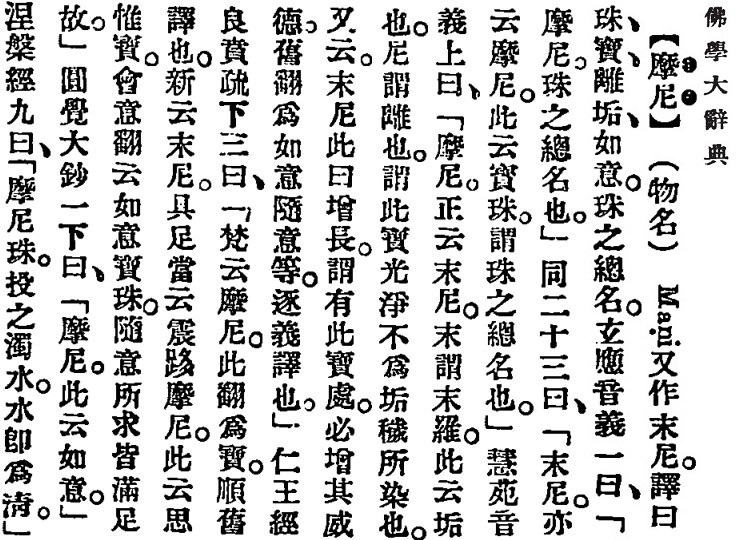 佛學大辭典
【摩尼】（物名）　Maṇi 又作末尼。譯曰
珠、寶、離垢、如意。珠之總名。玄應音義一曰、「
摩尼。珠之總名也。」同二十三曰、「末尼。亦
云摩尼。此云寶珠。謂珠之總名也。」慧苑音
義上曰、「摩尼。正云末尼。末謂末羅。此云垢
也。尼謂離也。謂此寶光淨不爲垢穢所染也。
又云。末尼此曰增長。謂有此寶處。必增其威
德。舊翻爲如意隨意等。逐義譯也。」仁王經
良賁疏下三曰、「梵云摩尼。此翻爲寶。順舊
譯也。新云末尼。具足當云震跢摩尼。此云思
惟寶。會意翻云如意寶珠。隨意所求皆滿足
故。」圓覺大鈔一下曰、「摩尼。此云如意。」
涅槃經九曰、「摩尼珠。投之濁水。水卽爲淸。」